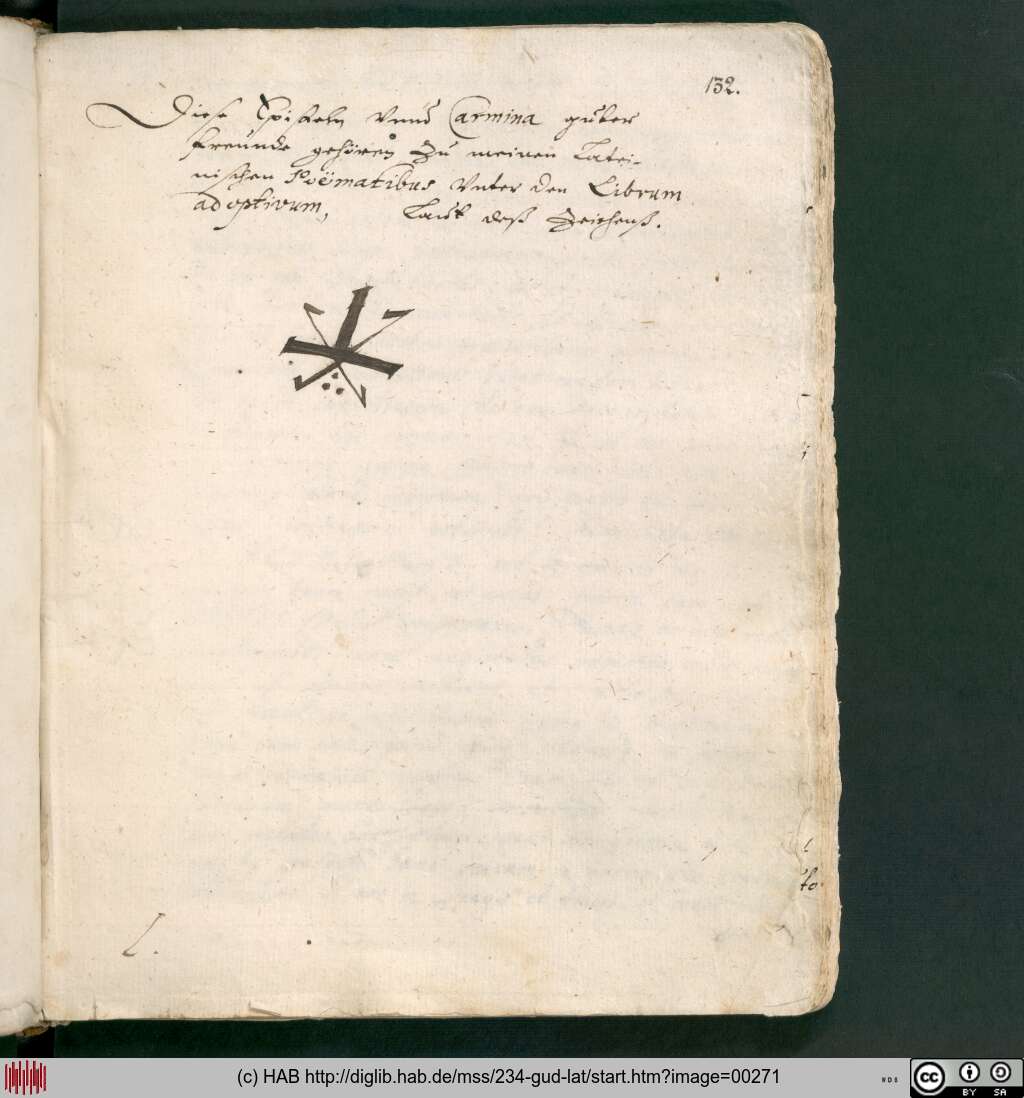 132.
Diese Episteln vnnd Carmina guter
Freunde gehören zu meinen Latei-
nischen Poëmatibus vnter den Librum
adoptivum, Laut deß Zeichenß.
L.
to.
(c) HAB http://diglib.hab.de/mss/234-gud-lat/start.htm?image=00271
cc BY SA